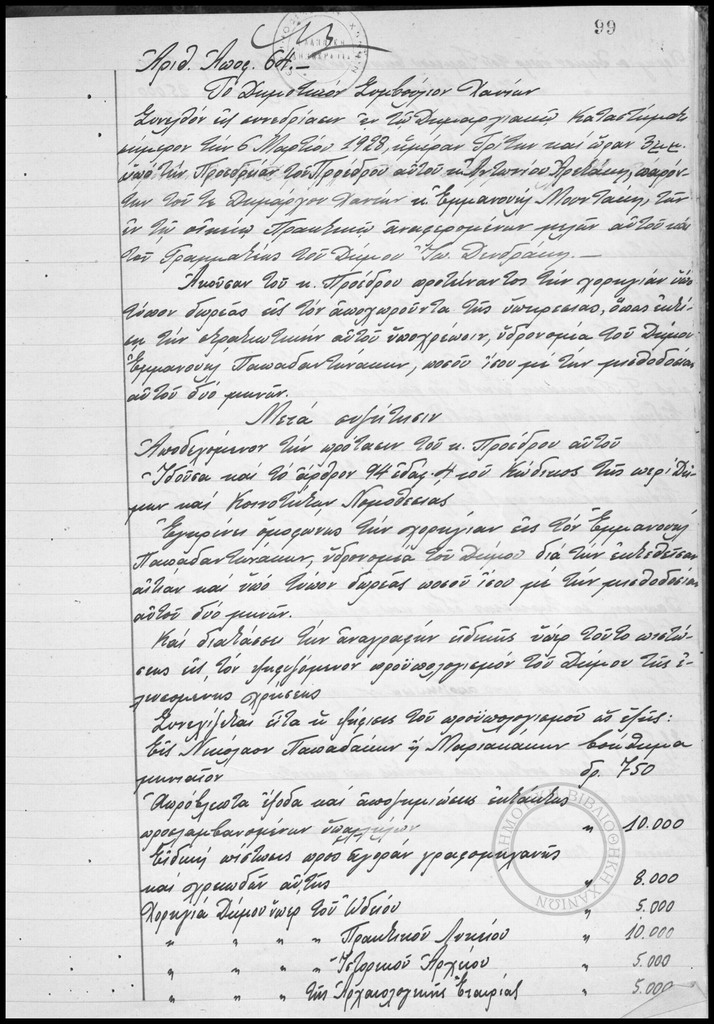 99
Ἀριθ. Ἀποφ. 64.-
Τὸ Δημοτικὸν Συμβούλιον Χανίων
Συνελθὸν εἰς συνεδρίασιν ἐν τῷ Δημαρχιακῷ Καταστήματι
σήμερον τὴν 6 Μαρτίου 1928, ἡμέραν Τρίτην καὶ ὥραν 3 μ.μ.
ὑπὸ τὴν Προεδρείαν τοῦ Προέδρου αὐτοῦ κ. Ἀντωνίου Ἀρετάκη, παρόν-
των τοῦ τε Δημάρχου Χανίων κ. Ἐμμανουὴλ Μουντάκη, τῶν
ἐν τῷ οἰκείῳ Πρακτικῷ ἀναφερομένων μελῶν αὐτοῦ καὶ
τοῦ Γραμματέως τοῦ Δήμου Ἰω. Δενδράκη.-
Ἀκοῦσαν τοῦ κ. Προέδρου προτείναντος τὴν χορηγίαν ὑπὸ
τύπον δωρεᾶς εἰς τὸν ἀποχωροῦντα τῆς ὑπηρεσίας, ὅπως ἐκτί-
σῃ τὴν στρατιωτικὴν αὐτοῦ ὑποχρέωσιν, ὑδρονομέα τοῦ Δήμου
Ἐμμανουὴλ Παπαδαντωνάκην, ποσοῦ ἴσου μὲ τὴν μισθοδοσίαν
αὐτοῦ δύο μηνῶν.
Μετὰ συζήτησιν
Ἀποδεχόμενον τὴν πρότασιν τοῦ κ. Προέδρου αὐτοῦ
Ἰδοῦσα καὶ τὸ ἄρθρον 94 ἐδάφ. 4 τοῦ Κώδικος τῆς περὶ Δή-
μων καὶ Κοινοτήτων Νομοθεσίας
Ἐγκρίνει ὁμοφώνως τὴν χορηγίαν εἰς τὸν Ἐμμανουὴλ
Παπαδαντωνάκην, ὑδρονομέα τοῦ Δήμου διὰ τὴν ἐκτεθεῖσαν
αἰτίαν καὶ ὑπὸ τύπον δωρεᾶς ποσοῦ ἴσου μὲ τὴν μισθοδοσίαν
αὐτοῦ δύο μηνῶν.
Καὶ διατάσσει τὴν ἀναγραφὴν εἰδικῆς ὑπὲρ τούτο πιστώ-
σεως εἰς τὸν ψηφιζόμενον προϋπολογισμὸν τοῦ Δήμου τῆς ἐ-
πιουσης χρήσεως
Συνεχίζεται εἶτα ἡ ψήφισις τοῦ προϋπολογισμοῦ ὡς ἑξῆς:
Εἰς Νικόλαον Παπαδάκην ἢ Μαριακάκην βοήθημα
μηνιαῖον δρ. 750
Ἀπρόβλεπτα ἔξοδα καὶ ἀποζημιώσεις ἐκτάκτως
προσλαμβανομένων ὑπαλλήλων " 10.000
Εἰδικὴ πίστωσις πρὸς ἀγορὰν γραφομηχανῆς
καὶ χρειωδῶν αὐτῆς " 8.000
Χορηγία Δήμου ὑπὲρ τοῦ Ὠδείου " 5.000
" " " " Πρακτικοῦ Λυκείου " 10.000
" " " " Ἱστορικοῦ Ἀρχείου " 5.000
" " " τῆς Ἀρχαιολογικῆς Ἑταιρίας " 5.000
ΔΗΜΟΤΙΚΗ ΒΙΒΛΙΟΘΗΚΗ ΧΑΝΙΩΝ